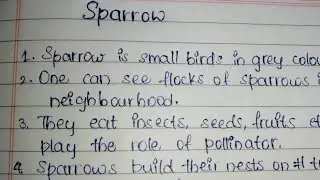 Sparrow
1. Sparrow is small birds in grey colou
2. One can see flocks of sparrows i
neighbourhood.
3. They eat insects, seeds, fruits et
play the role of pollinator.
4. Sparrows build their nests on